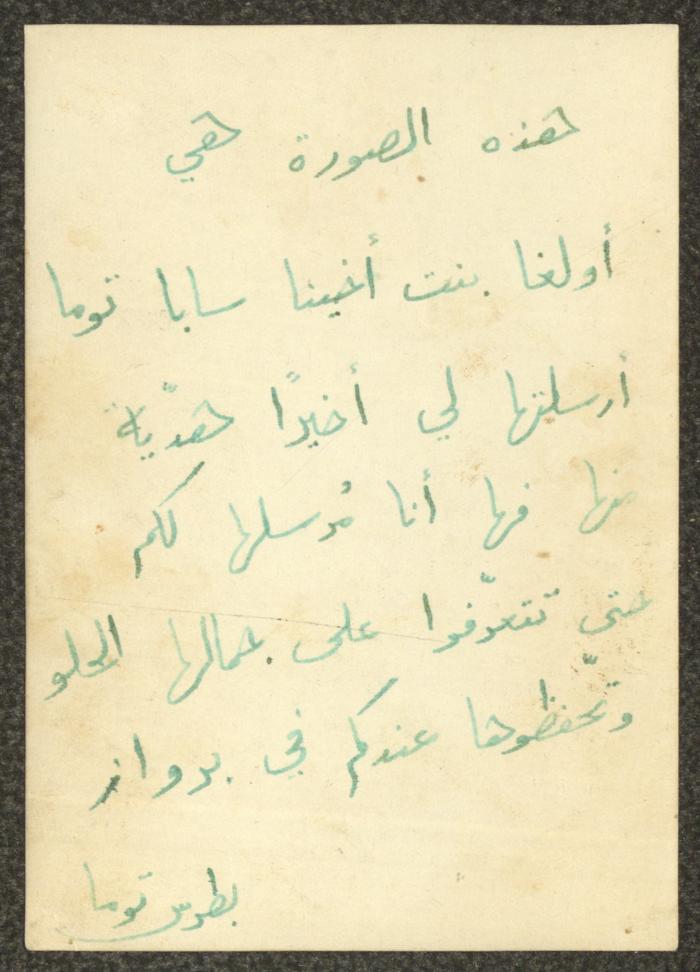 هذه الصورة هي
أولغا بنت أخينا سابا توما
أرسلتها لي أخيرًا هديّة
منها فها أنا مُرسلها لكم
حتى تتعرّفوا على جمالها الحلو
وتحفظوها عندكم في برواز
بطرس توما